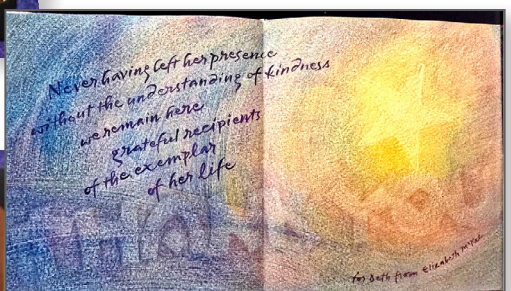 Never having left her presence
without the understanding of kindness
we remain here
grateful recipients
of the exemplar
of her life
for Beth from Elizabeth